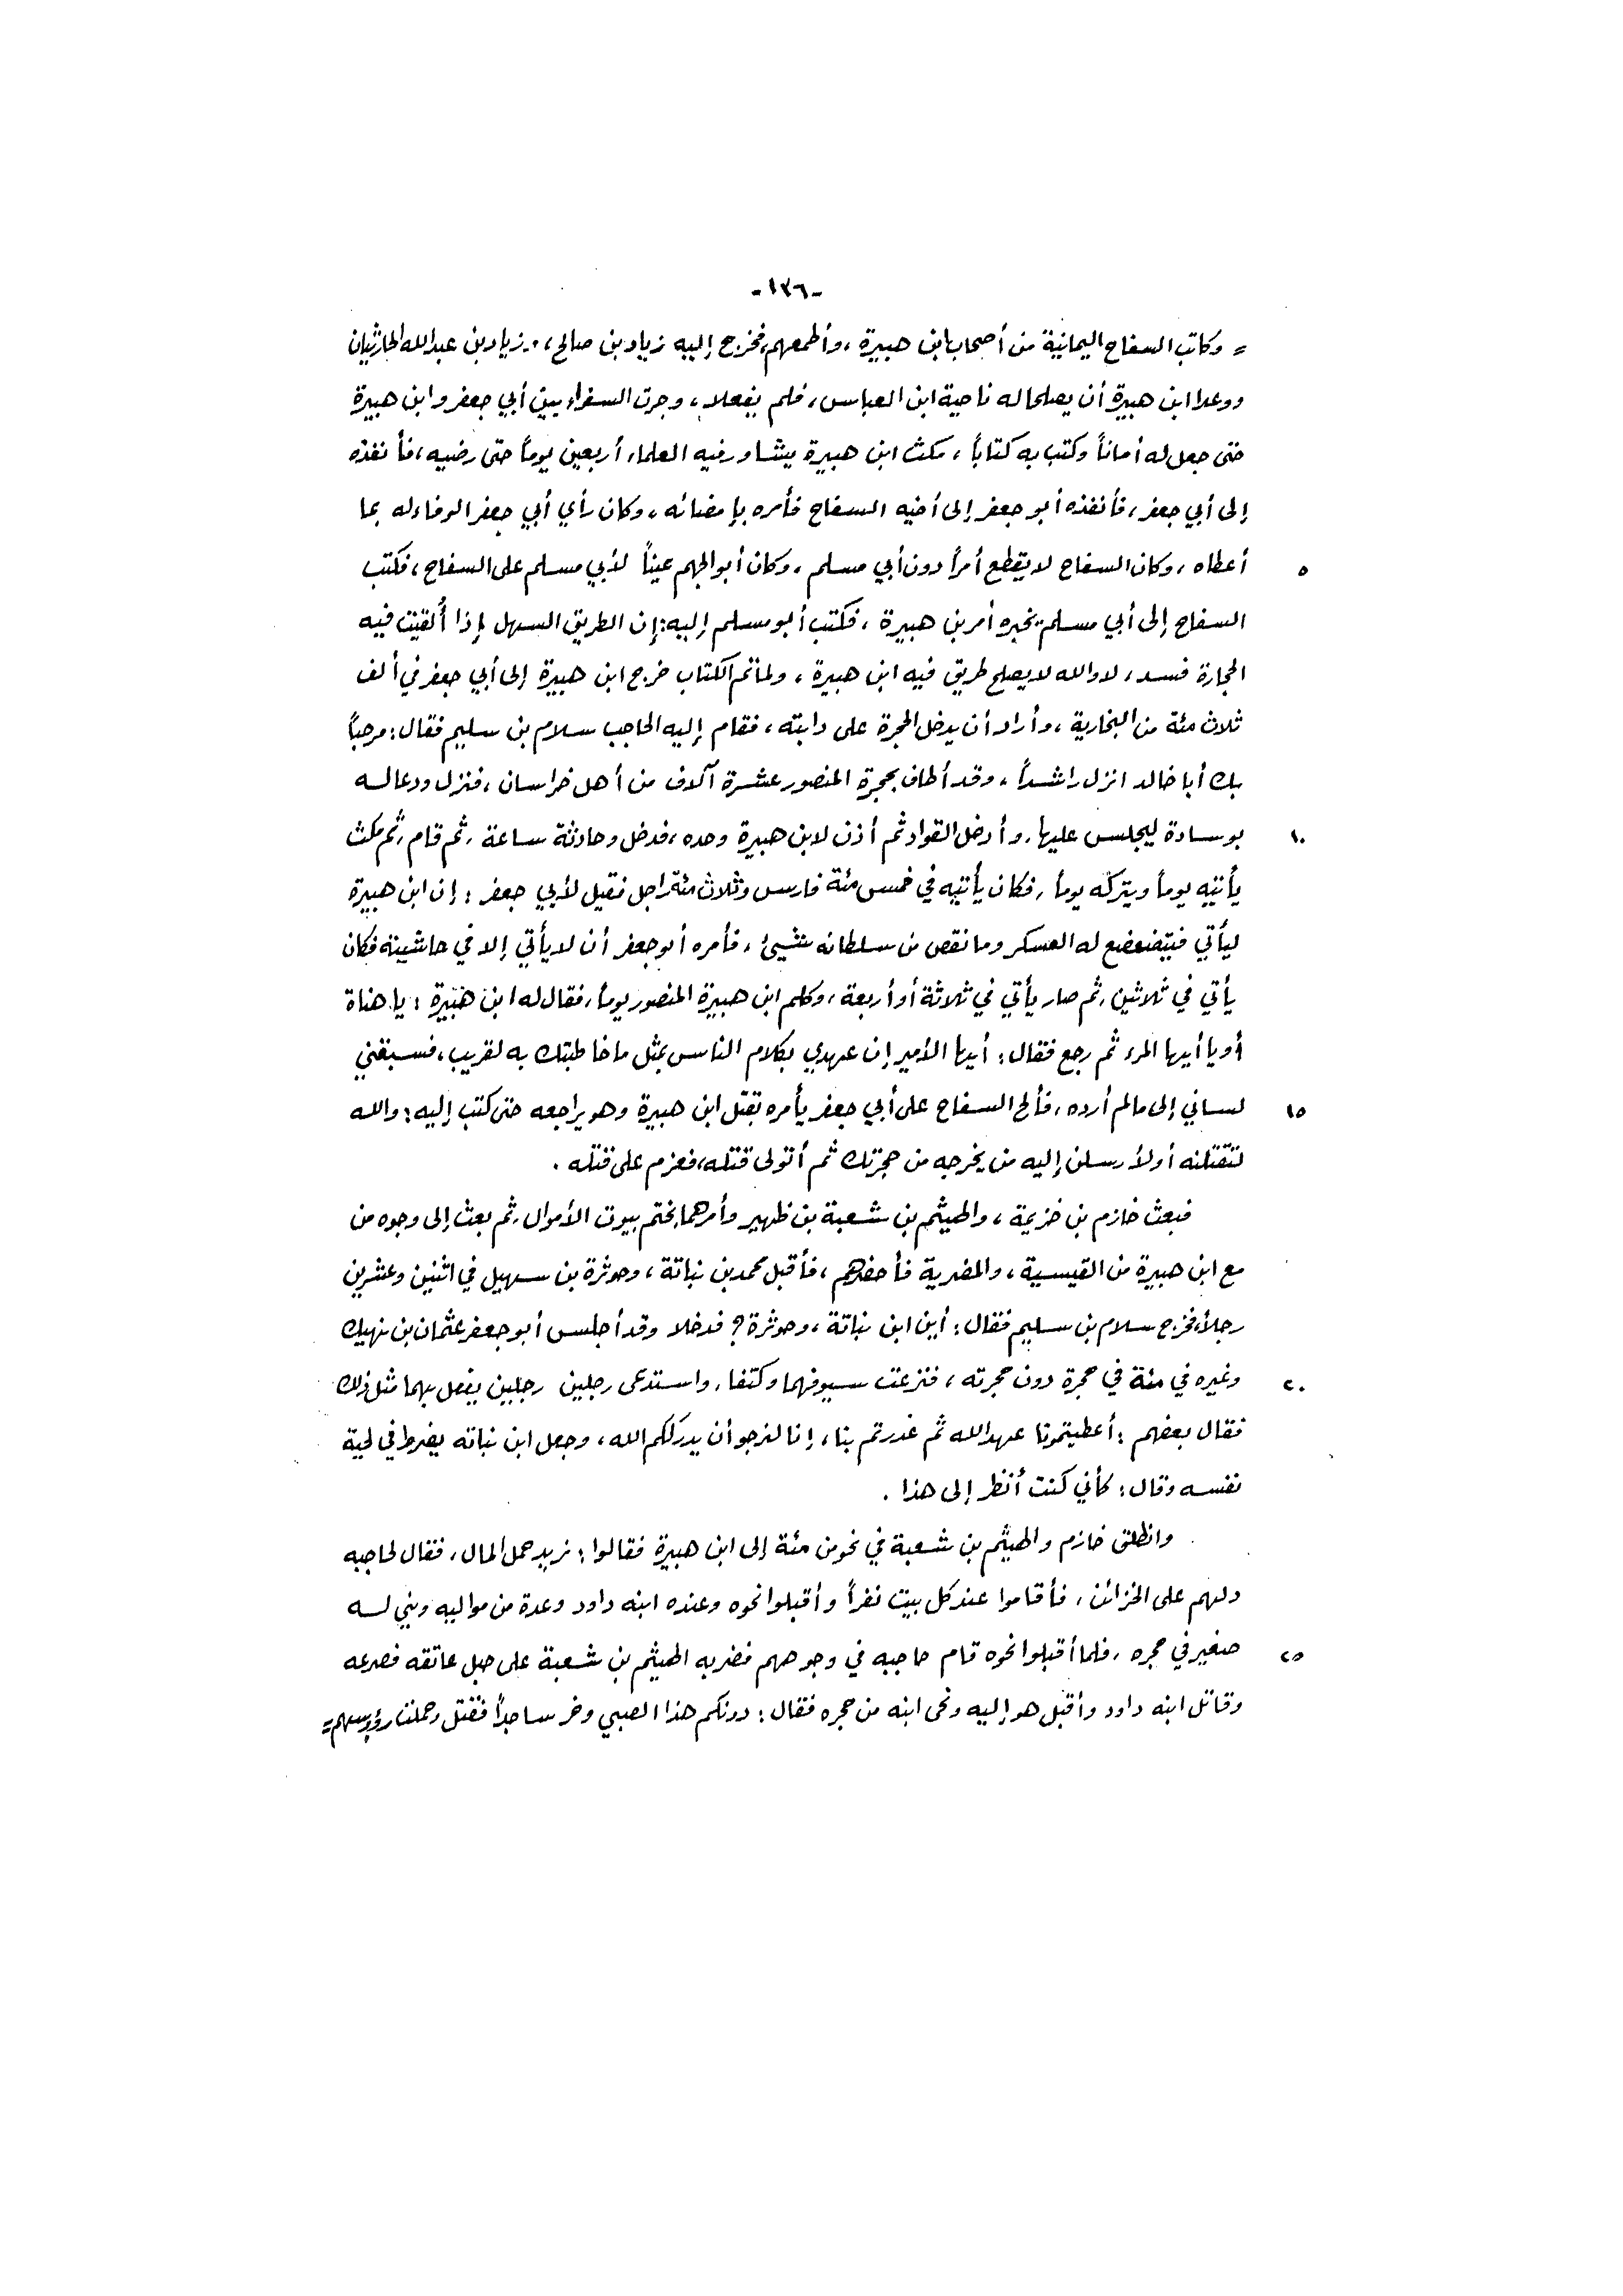 -١٣٦-
= وكاتب السفاح اليمانية من أصحاب ابن هبيرة ، وأطمعهم، فخرج إليه زياد بن صالح ، وزياد بن عبدالله الحارثيان
ووعدا ابن هبيرة أن يصلحا له ناحية ابن العباس ، فلم يفعلا ، وجرت السفراء بين أبي جعفر وابن هبيرة
حتى جعل له أماناً وكتب به كتاباً ، مكث ابن هبيرة يشاور فيه العلماء أربعين يوماً حتى رضيه ، فأنفذه
إلى أبي جعفر ، فأنفذه أبو جعفر إلى أخيه السفاح فأمره بإمضائه ، وكان رأي أبي جعفر الوفاء له بما
٥ أعطاه ، وكان السفاح لا يقطع أمراً دون أبي مسلم ، وكان أبو الجهم عيناً لأبي مسلم على السفاح ، فكتب
السفاح إلى أبي مسلم يخبره أمر بن هبيرة ، فكتب أبو مسلم إليه: إن الطريق السهل إذا أُلقيت فيه
الحجارة فسد ، لا والله لا يصلح طريق فيه ابن هبيرة ، ولما تم الكتاب خرج ابن هبيرة إلى أبي جعفر في ألف
ثلاث مئة من البخارية ، وأراد أن يدخل الحجرة على دابته ، فقام إليه الحاجب سلام بن سليم فقال: مرحباً
بك أبا خالد انزل راشداً ، وقد أطاف بحجرة المنصور عشرة آلاف من أهل خراسان ، فنزل ودعا له
١٠ بوسادة ليجلس عليها ، وأدخل القواد ثم أذن لابن هبيرة وحده ، فدخل وحادثة ساعة ، ثم قام ، ثم مكث
يأتيه يوماً ويتركه يوماً ، فكان يأتيه في خمس مئة فارس وثلاث مئة راجل فقيل لأبي جعفر : إن ابن هبيرة
ليأتي فيتضعضع له العسكر وما نقص من سلطانه شيئ ، فأمره أبو جعفر أن لا يأتي إلا في حاشيته فكان
يأتي في ثلاثين ، ثم صار يأتي في ثلاثة أو أربعة ، وكلم ابن هبيرة المنصور يوماً ، فقال له ابن هبيرة : يا هناة
أو يا أيها المرء ثم رجع فقال : أيها الأمير إن عهدي بكلام الناس بمثل ما خاطبتك به لقريب ، فسبقني
١٥ لساني إلى مالم أرده ، فألح السفاح على أبي جعفر يأمره بقتل ابن هبيرة وهو يراجعه حتى كتب إليه : والله
لتقتلنه أو لأرسلن إليه من يخرجه من حجرتك ثم أتولى قتله، فعزم على قتله .
فبعث خازم بن خزيمة ، والهيثم بن شعبة بن ظهير وأمرهما بختم بيوت الأموال ، ثم بعث إلى وجوه من
مع ابن هبيرة من القيسية ، والمضرية فأحضرهم ، فأقبل محمد بن نباتة ، وحوثرة بن سهيل في اثنين وعشرين
رجلاً، فخرج سلام بن سليم فقال : أين ابن نباتة ، وحوثرة ؟ فدخلا وقد أجلس أبو جعفر عثمان بن نهيك
٢٠ وغيره في مئة في حجرة دون حجرته ، فنزعت سيوفهما وكتفا ، واستدعى رجلين رجلين يفعل بهما مثل ذلك
فقال بعضهم : أعطيتمونا عهد الله ثم غدرتم بنا ، إنا لنرجو أن يدرككم الله ، وجعل ابن نباته يضرط في لحية
نفسه وقال : كأني كنت أنظر إلى هذا .
وانطلق خازم والهيثم بن شعبة في نحو من مئة إلى ابن هبيرة فقالوا : نريد حمل المال ، فقال لحاجبه
دلهم على الخزائن ، فأقاموا عند كل بيت نفراً وأقبلوا نحوه وعنده ابنه داود وعدة من مواليه وبني له
٢٥ صغير في حجره ، فلما أقبلوا نحوه قام حاجبه في وجوههم فضربه الهيثم بن شعبة على حبل عاتقه فصرعه
وقاتل ابنه داود وأقبل هو إليه ونحى ابنه من حجره فقال : دونكم هذا الصبي وخر ساجداً فقتل وحملت رؤوسهم =